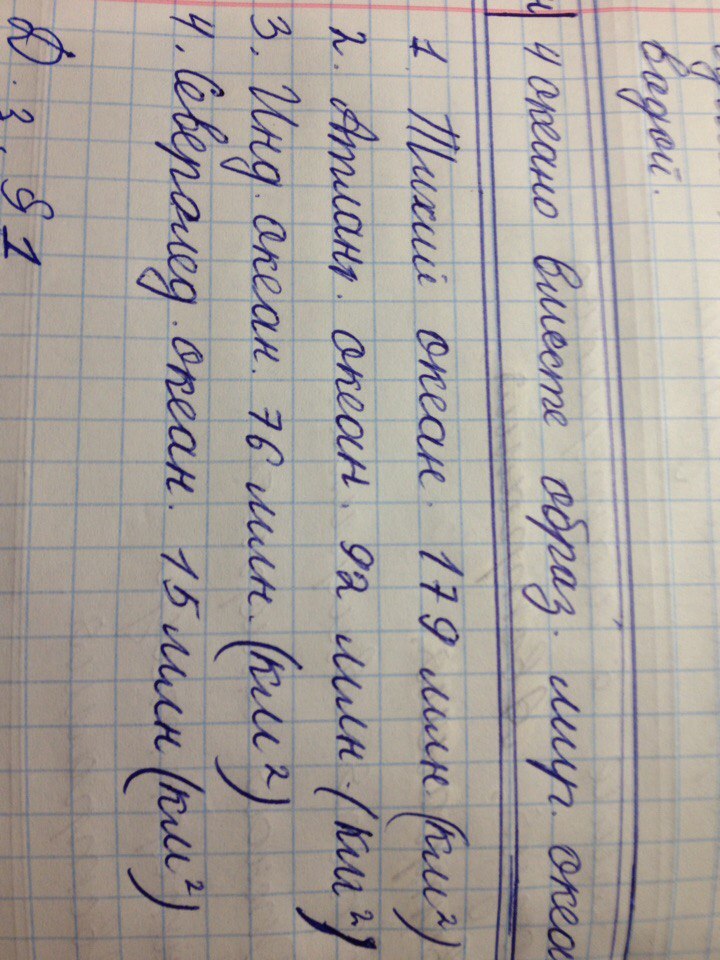 водой.
4 океано вместе образ. мир. океа
1. Тихий океан. 179 млн. (км²)
2. Атлант. океан. 92 млн. (км²)
3. Инд. океан. 76 млн. (км²)
4. Северолед. океан. 15 млн (км²)
Д. з. § 1